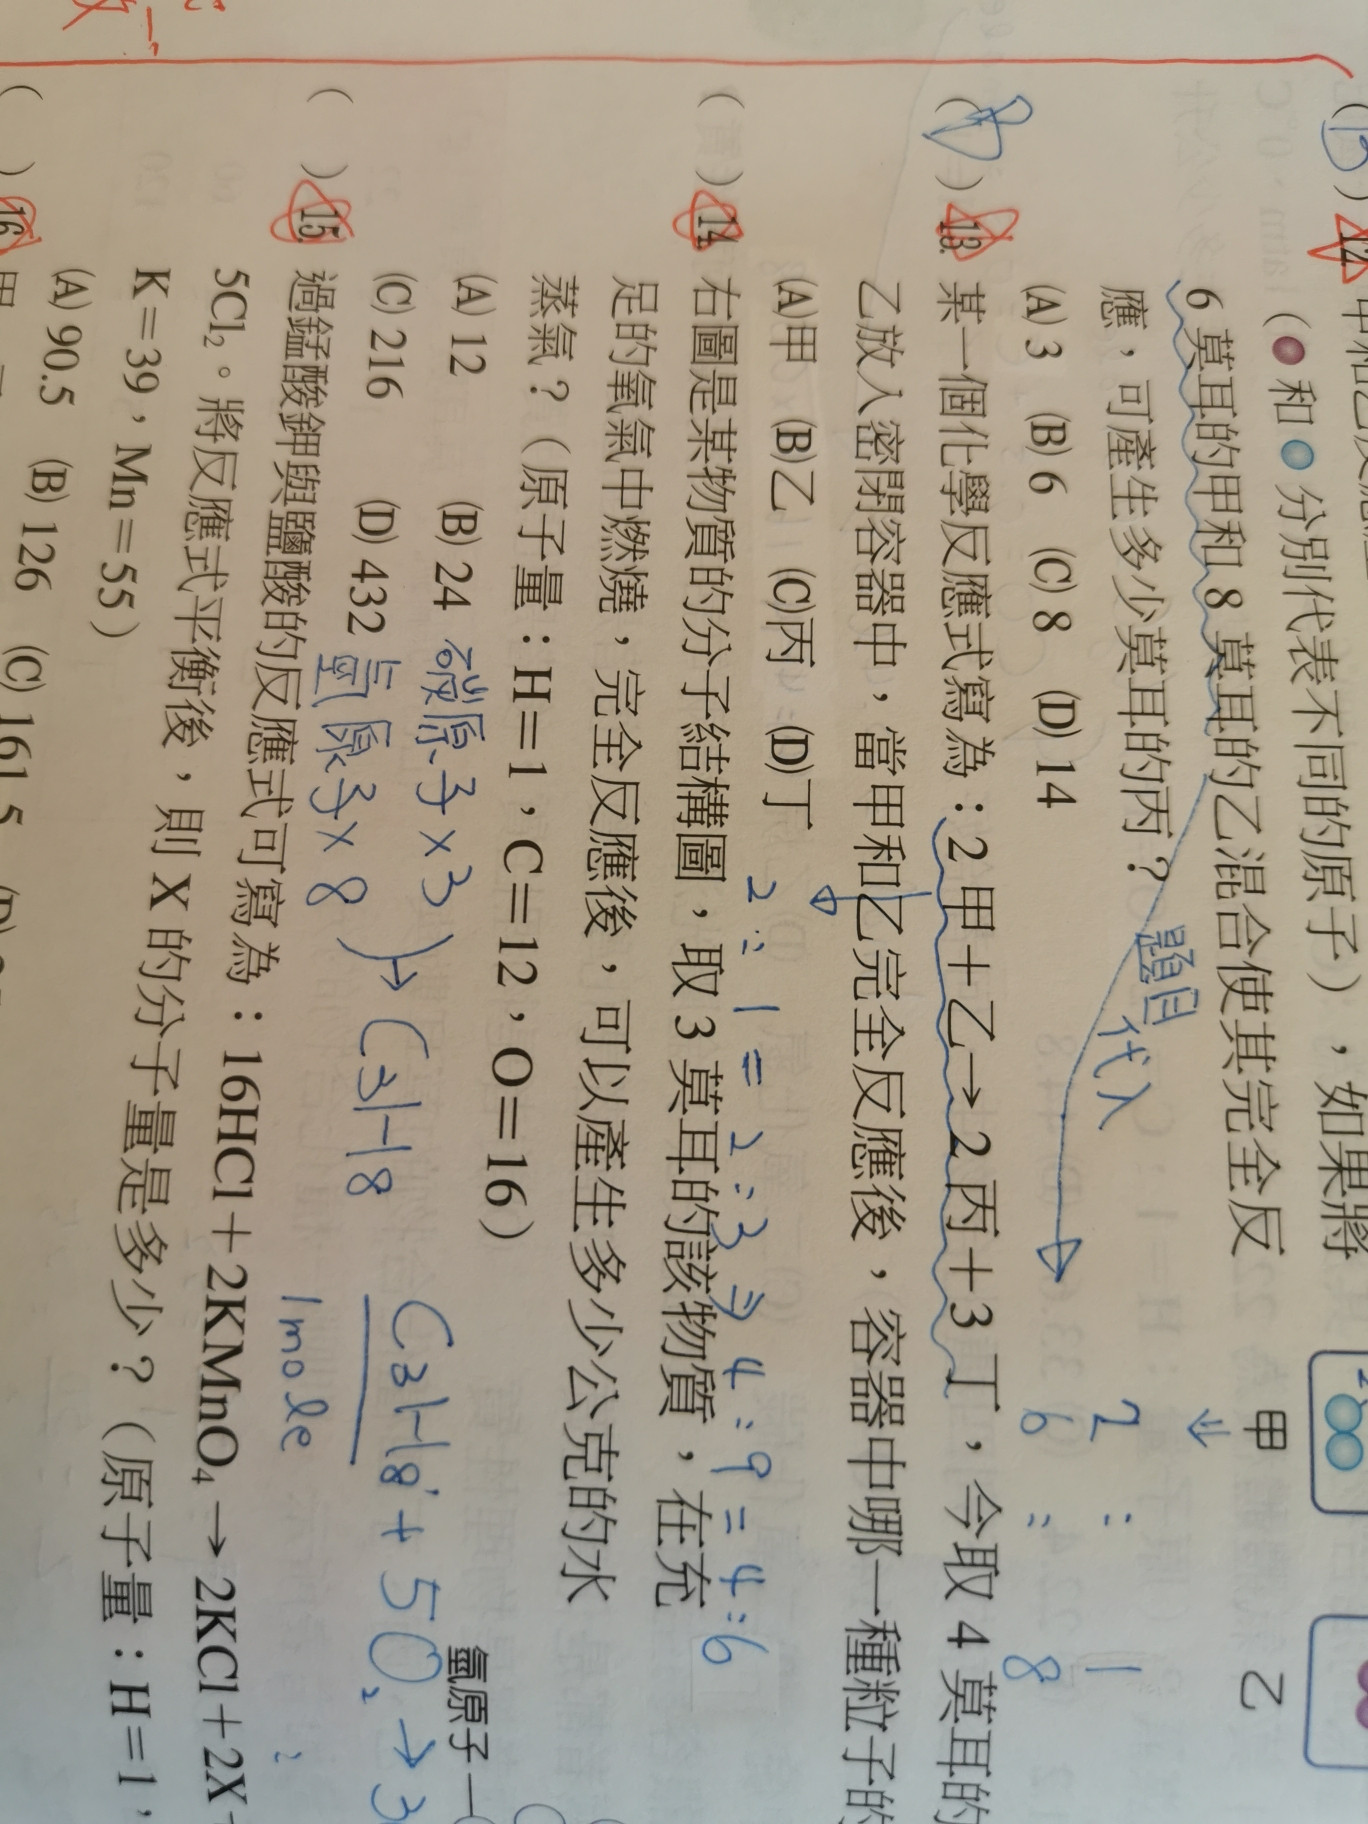 甲
乙
(●和●分別代表不同的原子),如果將
6 莫耳的甲和 8 莫耳的乙混合使其完全反
應,可產生多少莫耳的丙?
題目代入
2 : 1
(A) 3 (B) 6 (C) 8 (D) 14
6 : 8
13. 某一個化學反應式寫為:2 甲+乙→2 丙+3 丁,今取 4 莫耳的
乙放入密閉容器中,當甲和乙完全反應後,容器中哪一種粒子的
(A)甲 (B)乙 (C)丙 (D)丁
2 : 1 = 2 : 3 ⇒ 4 : 9 = 4 : 6
14. 右圖是某物質的分子結構圖,取 3 莫耳的該物質,在充
足的氧氣中燃燒,完全反應後,可以產生多少公克的水
蒸氣?(原子量:H=1,C=12,O=16)
(A) 12 (B) 24
碳原子×3
(C) 216 (D) 432
氫原子×8
→ C3H8
C3H8 + 5O2 → 3
1 mole :
氫原子
15. 過錳酸鉀與鹽酸的反應式可寫為:16HCl+2KMnO₄→2KCl+2X+
5Cl₂。將反應式平衡後,則 X 的分子量是多少?(原子量:H=1,
K=39,Mn=55)
(A) 90.5 (B) 126 (C) 161.5
16.